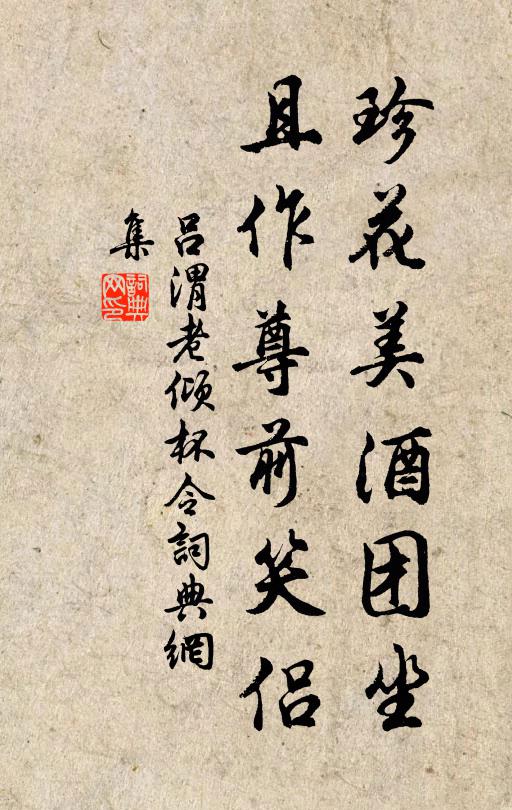 珍花美酒团坐
且作尊前笑侣
吕渭老倾杯令詞典網
集
詞典网印